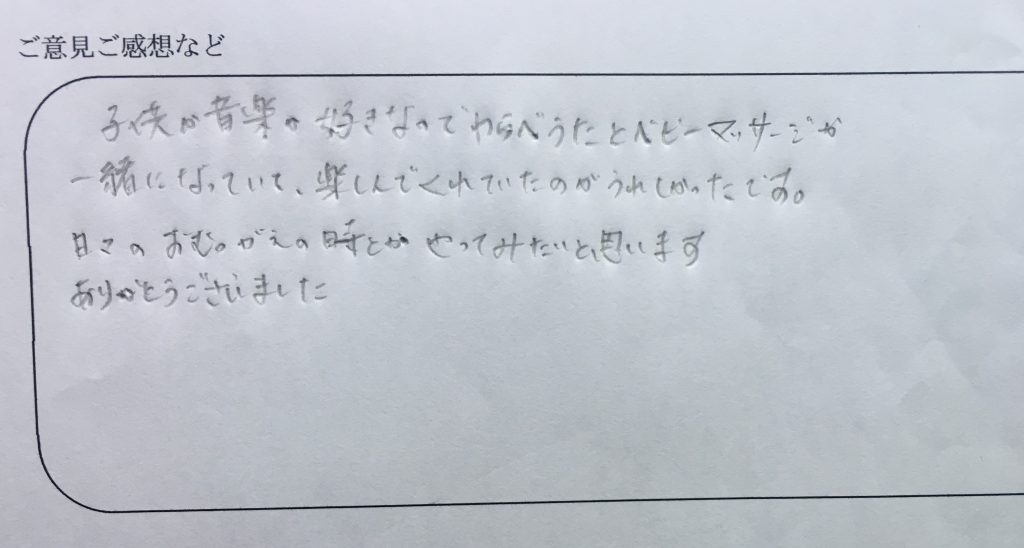 ご意見ご感想など
子供が音楽の好きなのでわらべうたとベビーマッサージが
一緒になっていて、楽しんでくれていたのがうれしかったです。
日々のおむつがえの時とかやってみたいと思います
ありがとうございました